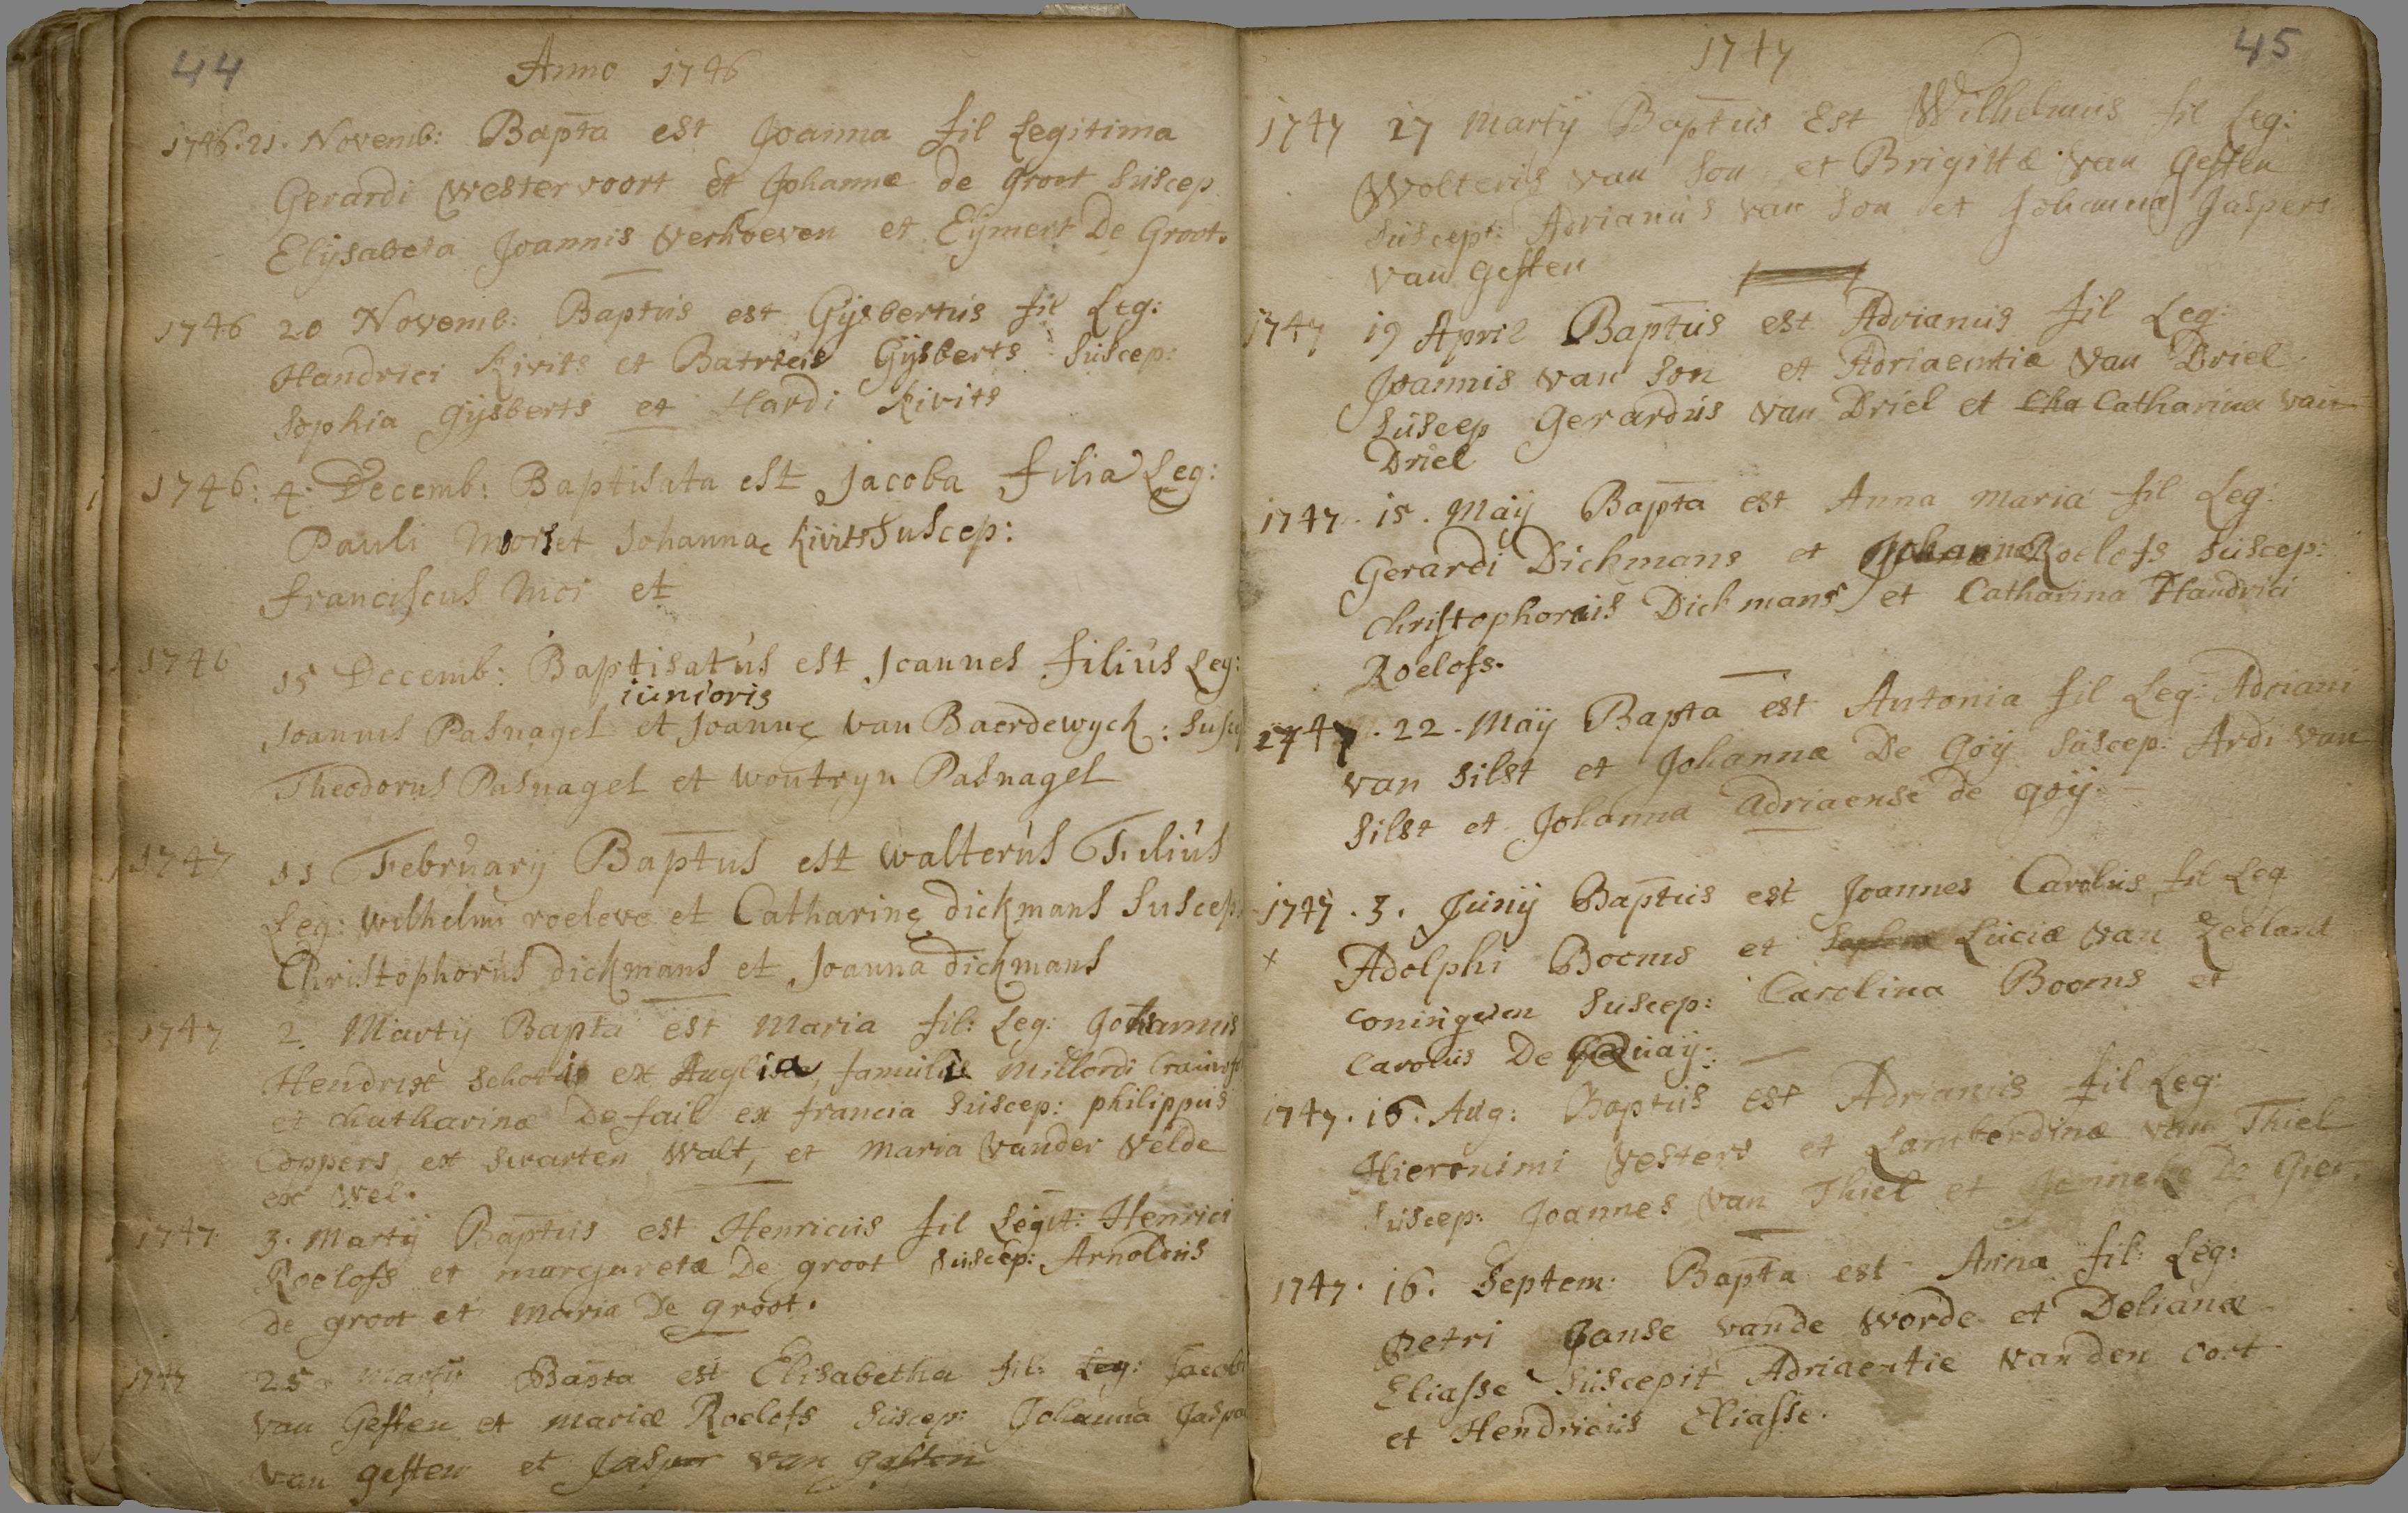 44
Anno 1746
1746. 21. Novemb: Bapta est Joanna fil Legitima
Gerardi westervoort et Johannæ de Groot suscep
Elijsabeta Joannis verhoeven et Eijmert De Groot.
1746 20 Novemb: Baptus est Gijsbertus fil Leg:
Handrici Kivits et Gijsberts suscep:
Sophia Gijsberts et Hardi Kivits
1746: 4. Decemb: Baptisata est Jacoba filia Leg:
Pauli et Johannae Kivits Suscep:
franciscus Moi et
1746 15 Decemb: Baptisatus est Joannes filius Leg:
iunioris
Joannis Pasnagel et Joannę van Baerdewyck: Susc
Theodorus Pasnagel et woutryn Pasnagel
1747 11 February Baptus est walterus Filius
Leg: wilhelmi roeleve et Catharinę dickmans Suscep
Christophorus dickmans et Joanna dickmans
1747 2. Martij Bapta est Maria fil: Leg: Johannis
Hendrix ex Anglia, Millordi
et chatharinæ De fail ex francia suscep: philippus
Coppers, ex swarten walt, et maria vander velde
ex wel.
1747 3. Martij Baptus est Henricus fil Legit: Henrici
Roelofs et margaretæ De groot suscep: Arnoldus
de groot et maria De groot.
1747 25 martij Bapta est Elisabetha fil: Leg: Jacobi
van Geffen et mariæ Roelofs suscep: Johanna Jaspa
van geffen et Jasper van geffen
1747
45
1747 27 Martij Baptus Est Wilhelmus fil Leg:
Wolteris van son et Brigittæ van Geffen
suscept: Adrianus van son et Johanna Jaspers
van Geffen
1747 19 April Baptus est Adrianus fil Leg:
Joannis van Son et Adriaentiæ van Driel
suscep Gerardus van Driel et Cha Catharina van
Driel
1747. 15. Maij Bapta est Anna maria fil Leg:
Gerardi Dickmans et Johannæ Roelofs suscep:
christophorus Dickmans et Catharina Handrici
Roelofs.
1747. 22. Maij Bapta est Antonia fil Leg: Adriani
van silst et Johannæ De Goij suscep: Ardi van
silst et Johanna adriaense de goij.
1747. 3. Junij Baptus est Joannes Carolus fil Leg
x Adolphi Booms et Luciæ van Zeeland
suscep: Carolina Booms et
Carolus De Quaij:
1747. 16. Aug: Baptus est Adrianus fil Leg:
Hieronimi vesters et Lamberdinæ van Thiel
suscep: Joannes van Thiel et Jenneke De Gier.
1747. 16. Septem: Bapta est Anna fil: Leg:
Petri Janse vande worde et Delianæ
Eliasse suscepit Adriaentie vanden oort
et Hendricus Eliasse.